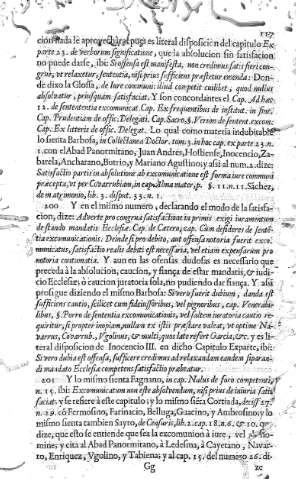 127
cion nada le aprovechàra; pues es literal disposicion del capitulo Ex
parte 23. de verborum significatione, que la absolucion sin satisfacion
no puede darse, ibi: Si offensa est manifesta, non credimus satis fieri con-
grui, ut relaxetur, sententia, nisi prius sufficiens præstetur emenda: Don-
de dixo la Glossa, de iure communi: illud competit cuilibet, quod
absolvatur, priusquàm satisfaciat. Y son concordantes el Cap. Ad hæc
12. de sententia excomunicat. Cap. Ex frequentibus de institut. in fine.
Cap. Prudentiam de offic. Delegati. Cap. Sacro, §. Verum de sentent. excom.
Cap. Ex litteris de offic. Delegat. Lo qual como materia indubitable
lo sienta Barbosa, in Collectanea Doctor. tom. 3. in hac cap. ex parte 23. n.
1. con el Abad Panormitano, Juan Andres, Hostiense, Inocencio, Za-
barela, Ancharano, Botrio, y Mariano Agustino; y assi al num. 2. dize:
Satisfactio partis in absolutione ab excomunicatione est forma iure communi
præcepta, ut per Covarrubiam, in cap. Alma mater, p. §. 11. n. 11. Sachez,
de matrimonio, lib. 3. disput. 33. n. 1.
200 Y en el mismo numero, declarando el modo de la satisfa-
cion, dize: Adverte pro congrua satisfactione in primis exigi iuramentum
de stando mandatis Ecclesiæ. Cap. de Cætero, cap. Cum desideres de senten-
tia excomunicationis. Deinde si pro debito, aut offensa notoria fuerit exco-
municatus, satisfactio realis debiti est necessaria, vel etiam expensarum pro
notoria contumatia. Y aun en las ofensas dudosas es necessario que
preceda à la absolucion, caucion, y fiança de estar mandatis, & iudi-
cio Ecclesiæ; ò caucion juratoria sola, no pudiendo dar fiança. Y assi
prosigue diziendo el mismo Barbosa: Si vero fuerit dubium, danda est
sufficiens cautio, scilicet cum fideiussoribus, vel pignoribus, cap. Venerabi-
libus, §. Porro de sententia excommunicationis, vel saltem iuratoria cautio re-
quiritur, si propter inopiam, nullam ex istis præstare valeat, ut optime Na-
varrus, Covarrub., Vgolinus, & multi, quos late refert Garcia, &c. y es li-
teral disposicion de Inocencio III. en dicho Capitulo Exparte, ibi:
Si vero dubia est offensa, sufficere credimus ad relaxandam eandem si paran-
di mandato Ecclesiæ competens satisfactio præbeatur.
201 Y lo mismo sienta Fagnano, in cap. Nulus de foro competenti,
n. 15. ibi: Excomunicatum non esse absolvendum, nisi prius de iniuria satis-
faciat. y se refiere à este capitulo; y lo mismo sienta Cortiada, decis. 27.
n. 29. có Fermosino, Farinacio, Belluga, Guacino, y Ambrosino; y lo
mismo sienta tambien Sayro, de Censuris, lib. 2. cap. 18. n. 6. & 10. que
dize, que esto se entiende que sea la excomunion à iure, vel ab ho-
mine; y cita al Abad Panormitano, à Ledesma, à Cayetano, Navar-
ro, Enriquez, Vgolino, y Tabiena; y al cap. 15. del numero 26. di-
Gg
ze